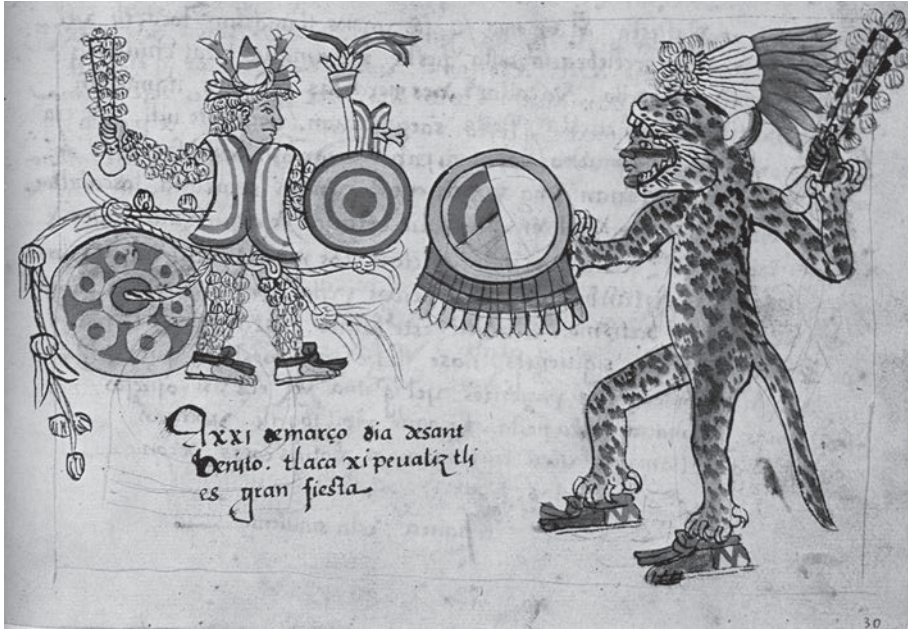 A xxi de março dia de sant
benito. tlaca xipeualiztli
es gran fiesta
30